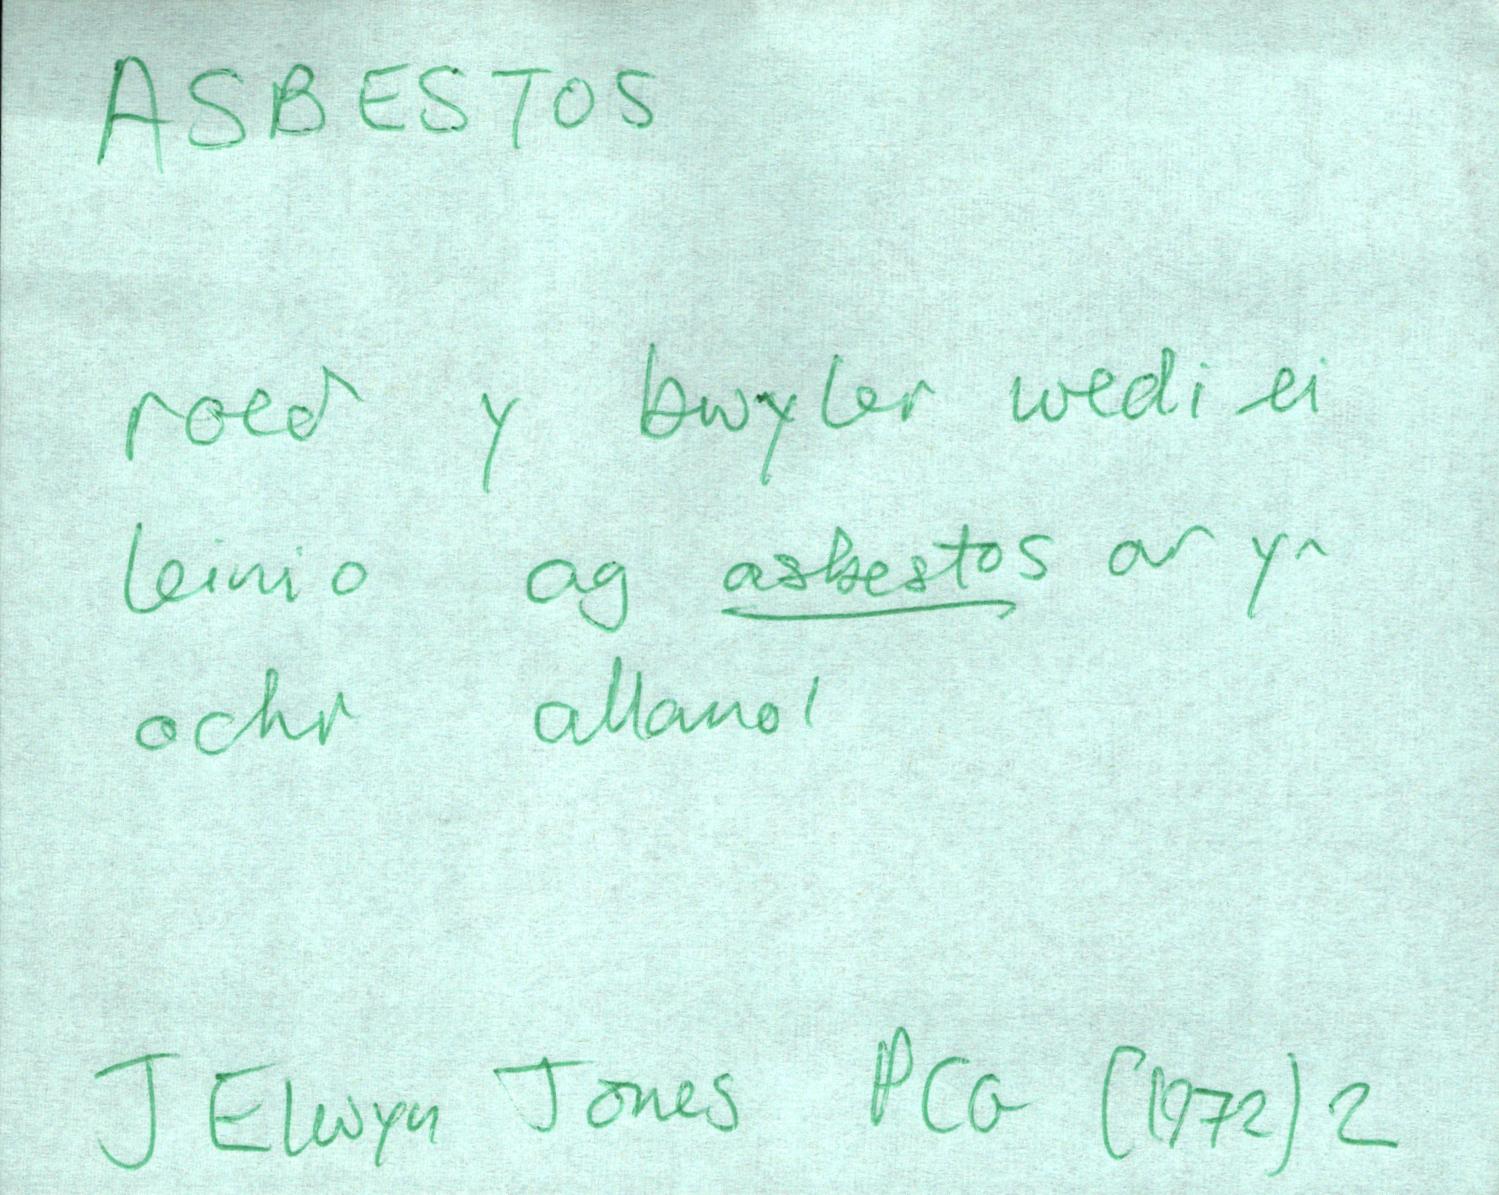 ASBESTOS
roed y bwyler wedi ei
leinio ag asbestos ar yr
ochr allanol
J Elwyn Jones PCG (1972) 2